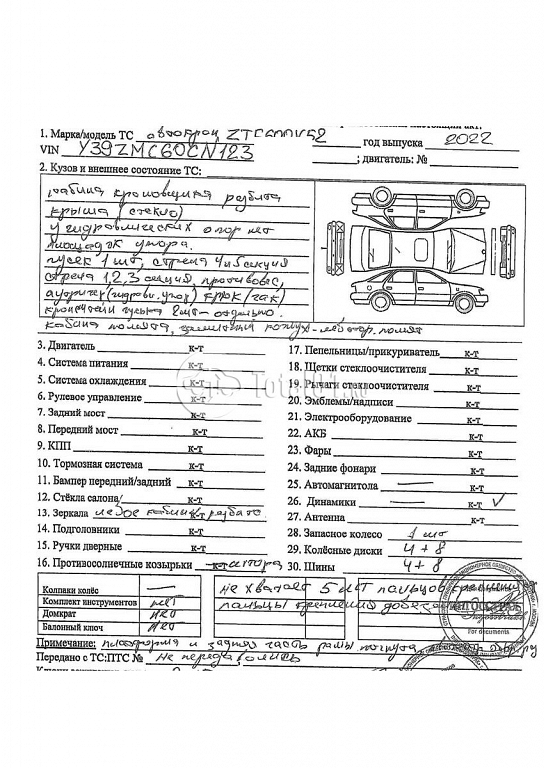 1. Марка/модель ТС автокран ZTC600V52 год выпуска 2022
VIN Y39ZMC60CN123 ; двигатель: №
2. Кузов и внешнее состояние ТС:
кабина крановщика разбита
крыша (стекло)
у гидравлических опор нет
площадок упора.
гусек 1 шт, стрела 4 и 5 секция
стрела 1,2,3 секция, противовес,
крюк (гак)
гуська 2шт - отдельно.
кабина помята,
3. Двигатель к-т
4. Система питания к-т
5. Система охлаждения к-т
6. Рулевое управление к-т
7. Задний мост к-т
8. Передний мост к-т
9. КПП к-т
10. Тормозная система к-т
11. Бампер передний/задний к-т
12. Стёкла салона/ к-т
13. Зеркала левое кабины разбито. к-т
14. Подголовники к-т
15. Ручки дверные к-т
16. Противосолнечные козырьки к-т штора
17. Пепельницы/прикуриватель к-т
18. Щетки стеклоочистителя к-т
19. Рычаги стеклоочистителя к-т
20. Эмблемы/надписи к-т
21. Электрооборудование к-т
22. АКБ к-т
23. Фары к-т
24. Задние фонари к-т
25. Автомагнитола — к-т
26. Динамики — к-т
27. Антенна к-т
28. Запасное колесо 1 шт
29. Колёсные диски 4+8
30. Шины 4+8
Колпаки колёс —
Комплект инструментов нет
Домкрат нет
Балонный ключ нет
не хватает 5 шт пальцов крепления
пальцы крепления
For documents
Примечание: платформа и задняя часть рамы погнута
Передано с ТС:ПТС № не передавались